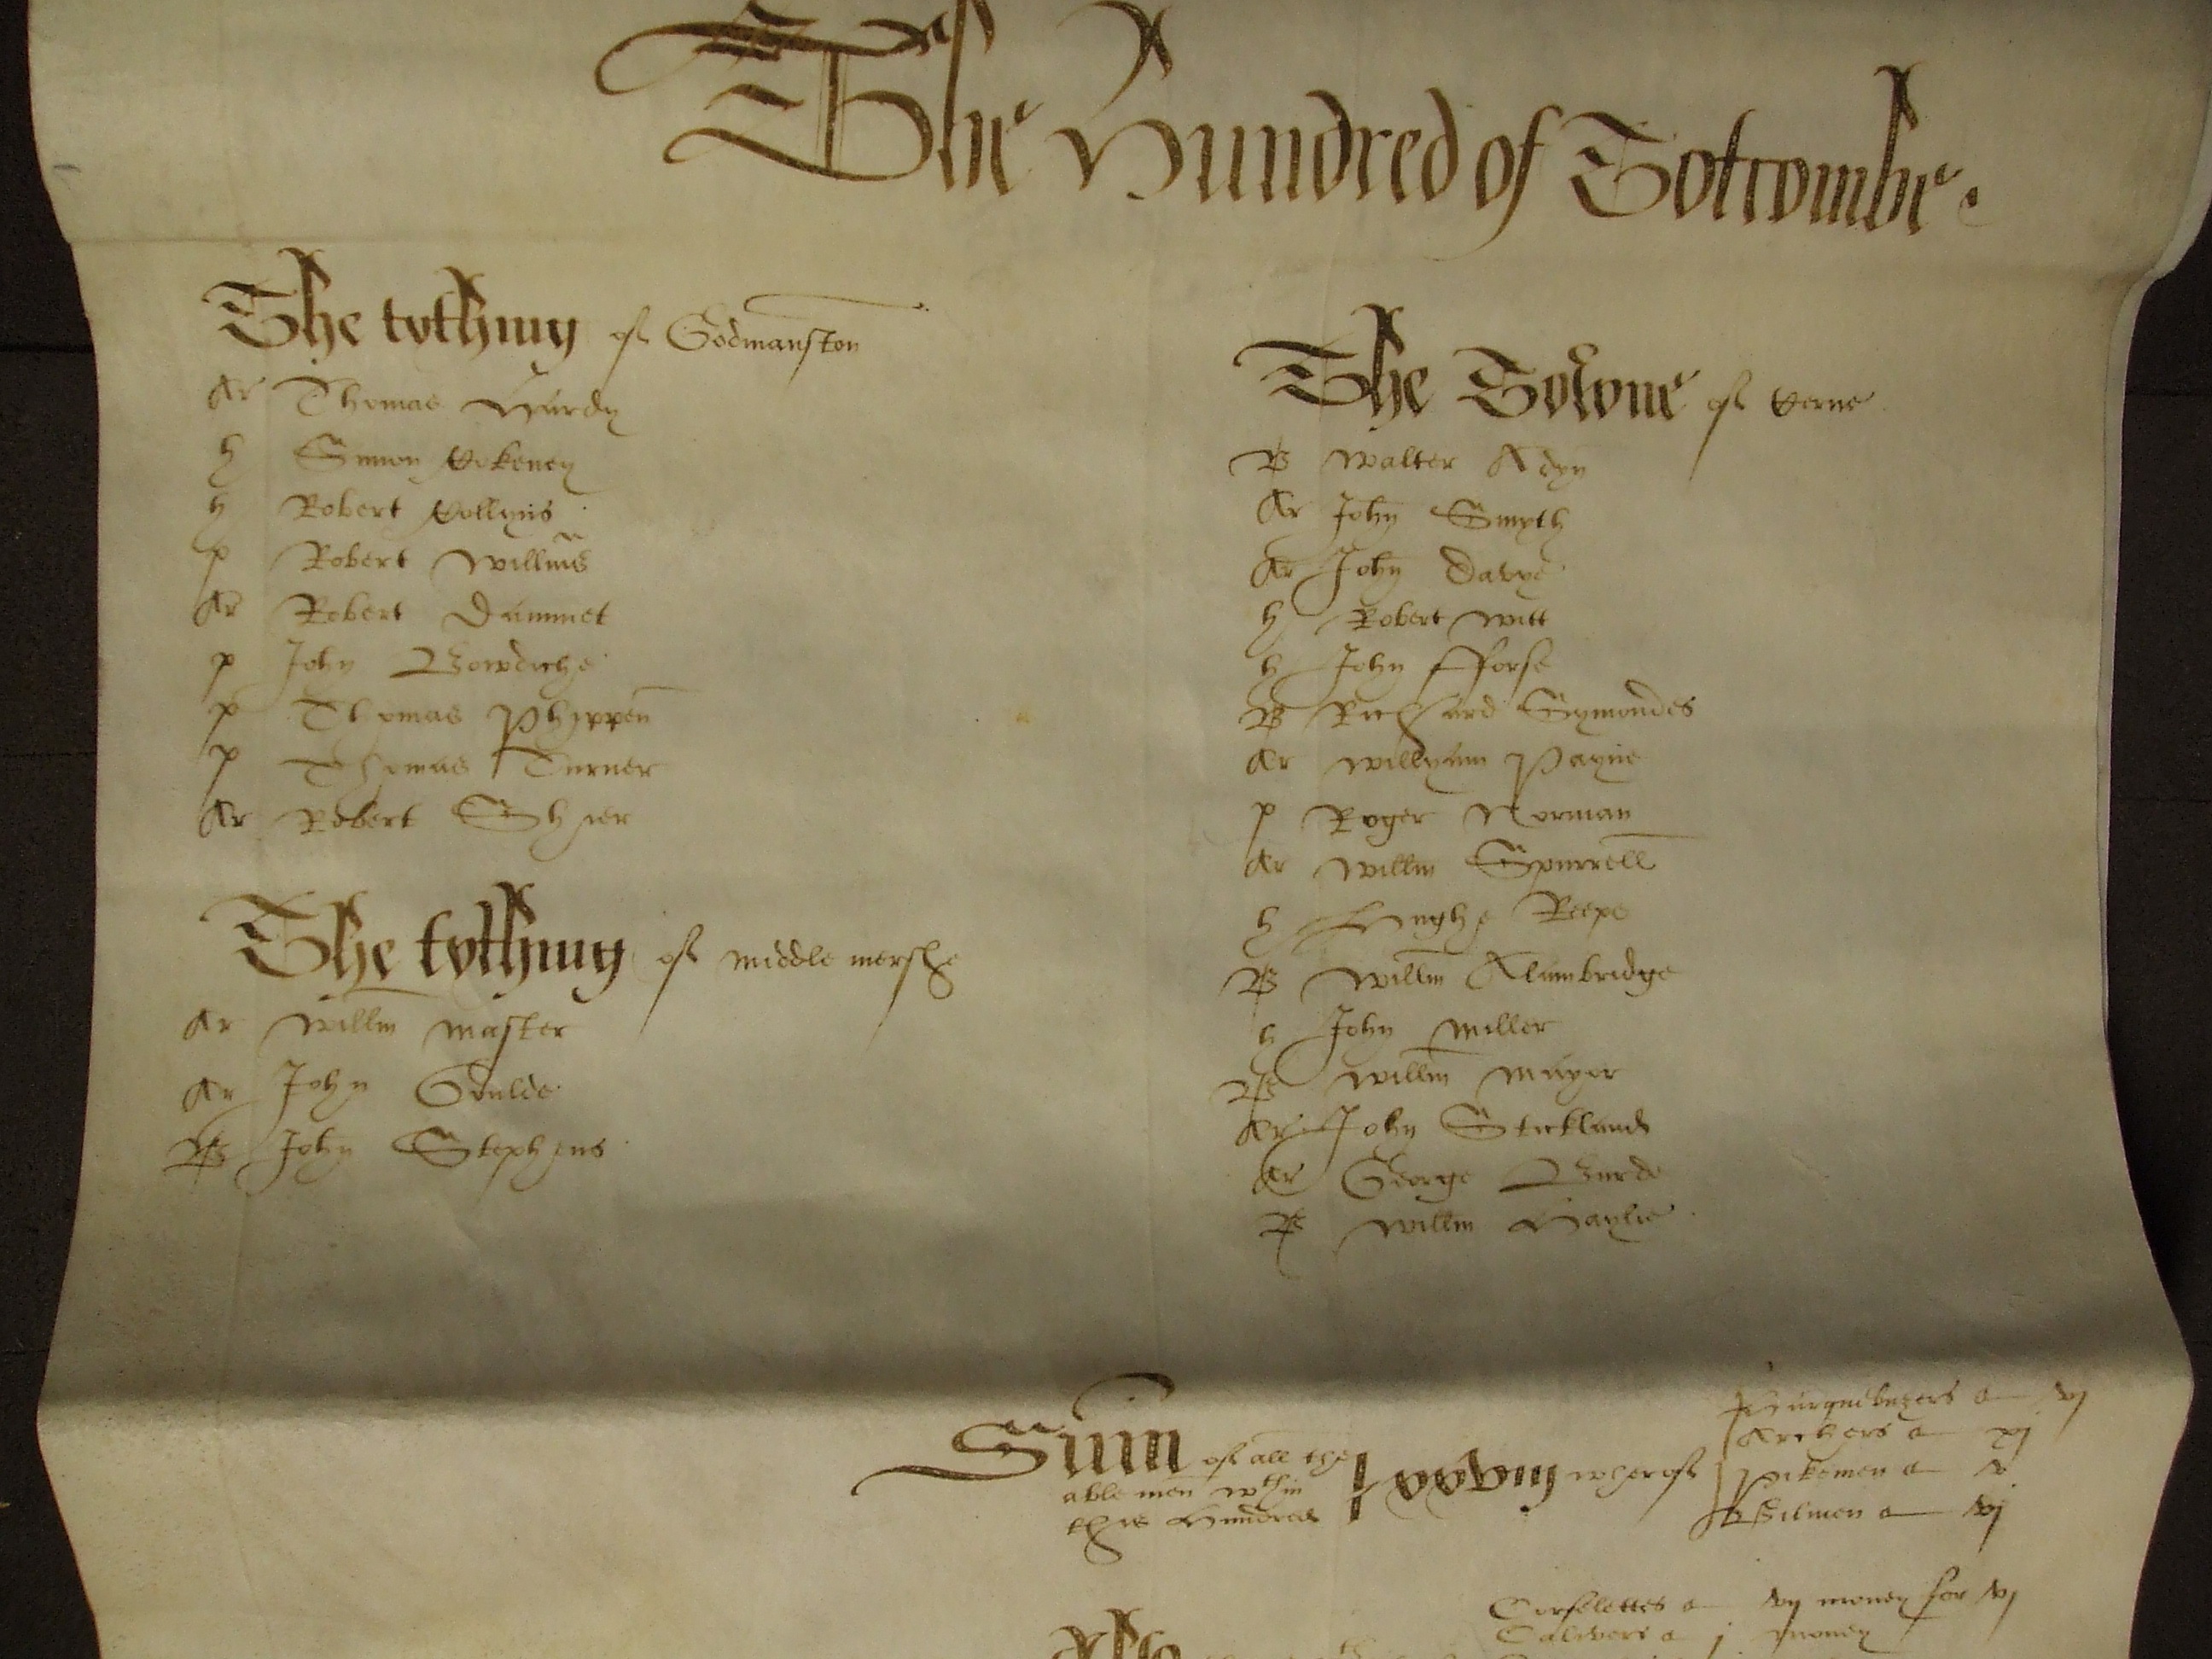 The Hundred of Totcombe.
The tothing of Godmanston
Ar Thomas Hurdy
h Simon Cokeney
h Robert Collyns
p Robert Willms
Ar Robert Dammet
p John Bowdiche
p Thomas Phippen
p Thomas Turner
Ar Robert Shier
The tothing of middle mershe
Ar Willm Master
Ar John Goulde
B John Stephens
The Towne of Cerne
B Walter Adyn
Ar John Smyth
Ar John Davye
h Robert Witt
h John fforse
B Richard Symondes
Ar Willyam Payne
p Roger Norman
Ar Willm Spurrell
h Hughe Reepe
B Willm Alambridge
h John Miller
B Willm Mayer
Ar John Sticklande
Ar George Burde
B Willm Haylie
Sum of all the
able men wthin
this Hundred
xxviij wherof
Harquebuzers vj
Archers xj
Pikemen v
Bilmen vj
Corselettes vij money for vj
Calivers j money
Also